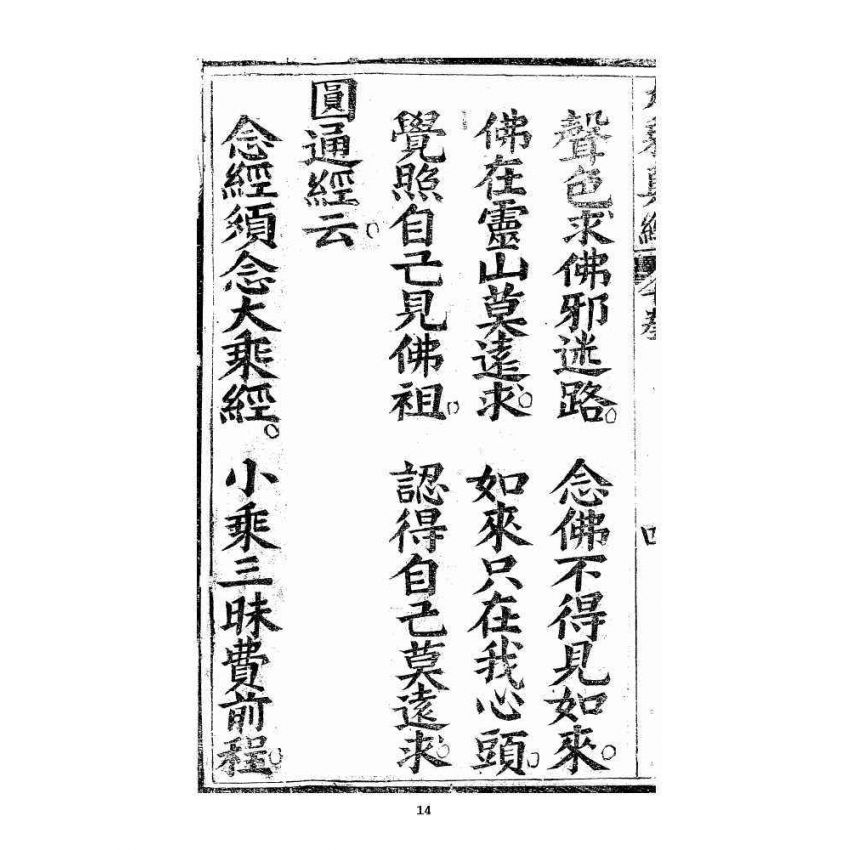 聲色求佛邪迷路。 念佛不得見如來。
佛在靈山莫遠求。 如來只在我心頭。
覺照自己見佛祖。 認得自己莫遠求。
圓通經云。
念經須念大乘經。 小乘三昧費前程。
14